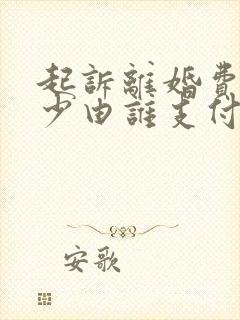 起訴離婚費
少由誰支付
安歌